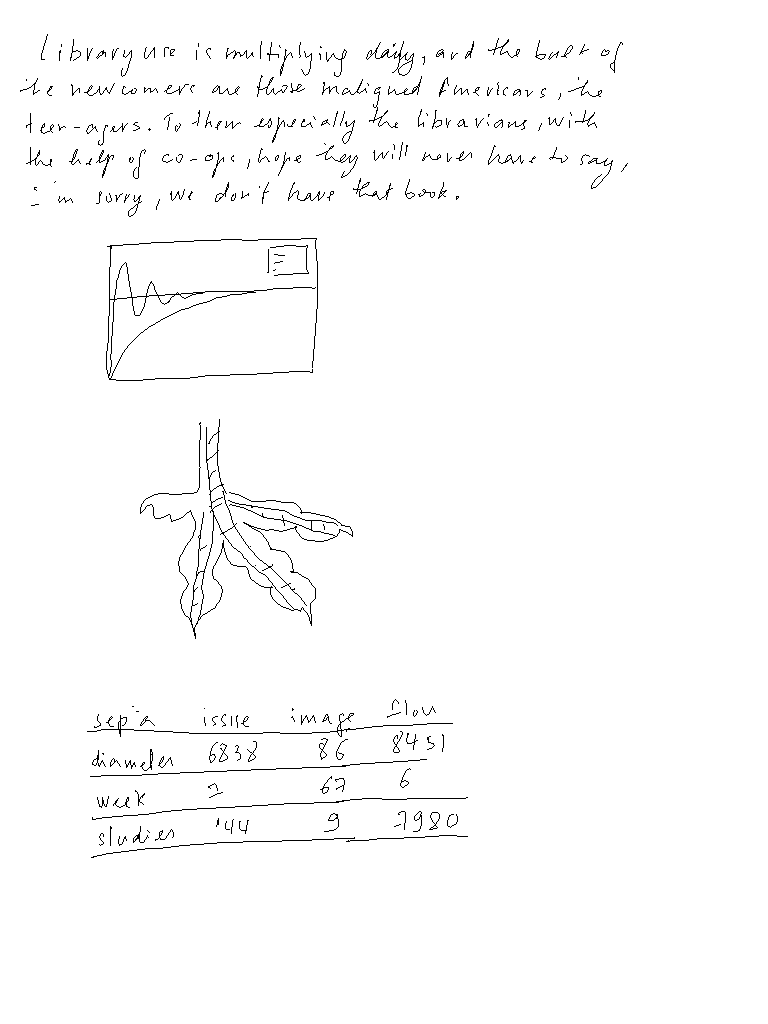 Library use is multiplying daily, and the bulk of
the newcomers are those maligned Americans, the
teen-agers. To them especially the librarians, with
the help of co-ops, hope they will never have to say,
I'm sorry, we don't have that book.
sepia issue image flow
diameter 6838 86 8451
week 67 6
studies '44 9 7980